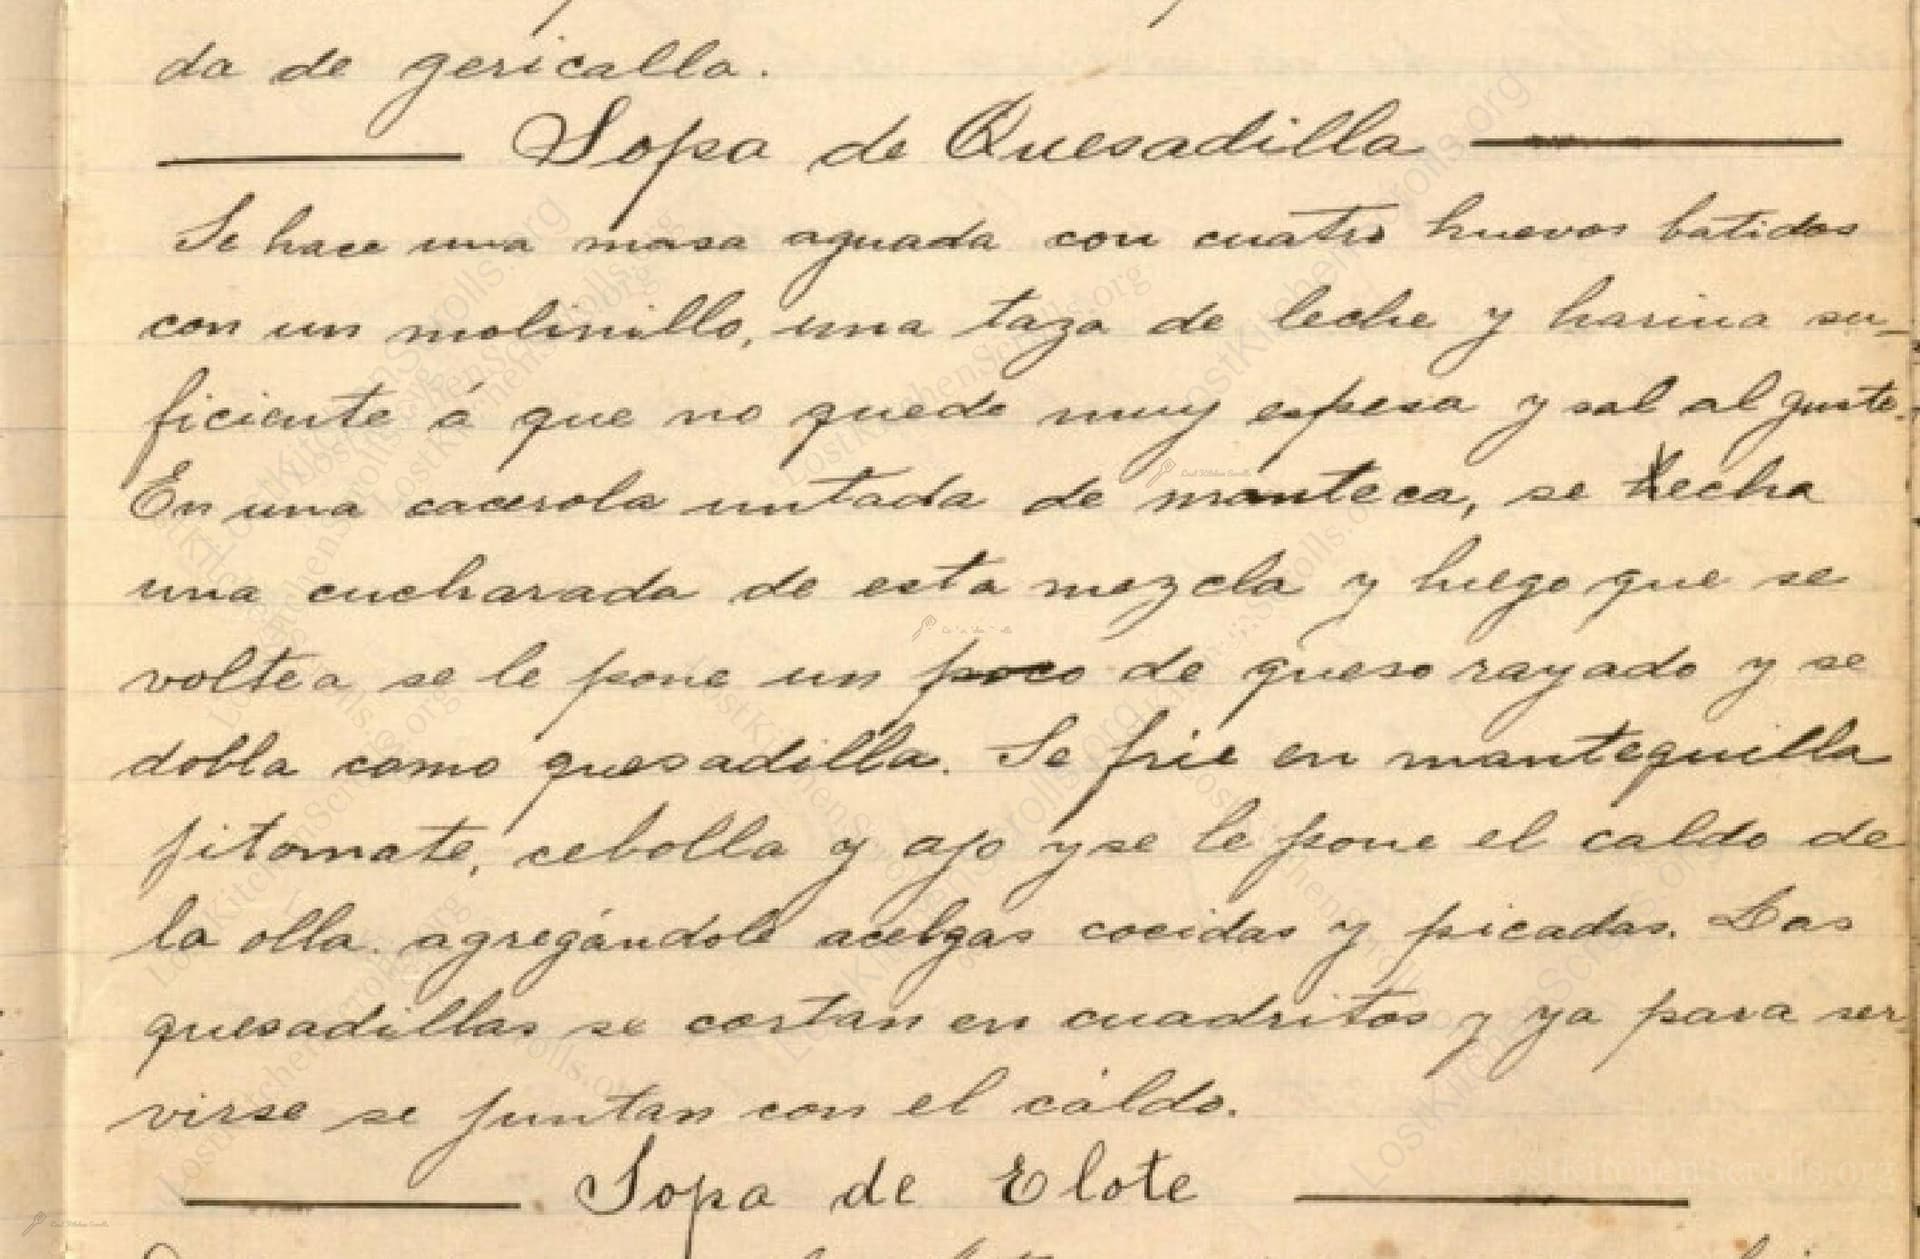 da de gericalla.
Sopa de Quesadilla
Se hace una masa aguada con cuatro huevos batidos
con un molinillo, una taza de leche y harina su-
ficiente á que no quede muy espesa y sal al gusto.
En una cacerola untada de manteca, se hecha
una cucharada de esta mezcla y luego que se
voltea se le pone un poco de queso rayado y se
dobla como quesadilla. Se frie en mantequilla
jitomate, cebolla y ajo y se le pone el caldo de
la olla agregándole acelgas cocidas y picadas. Las
quesadillas se cortan en cuadritos y ya para ser-
virse se juntan con el caldo.
Sopa de Elote